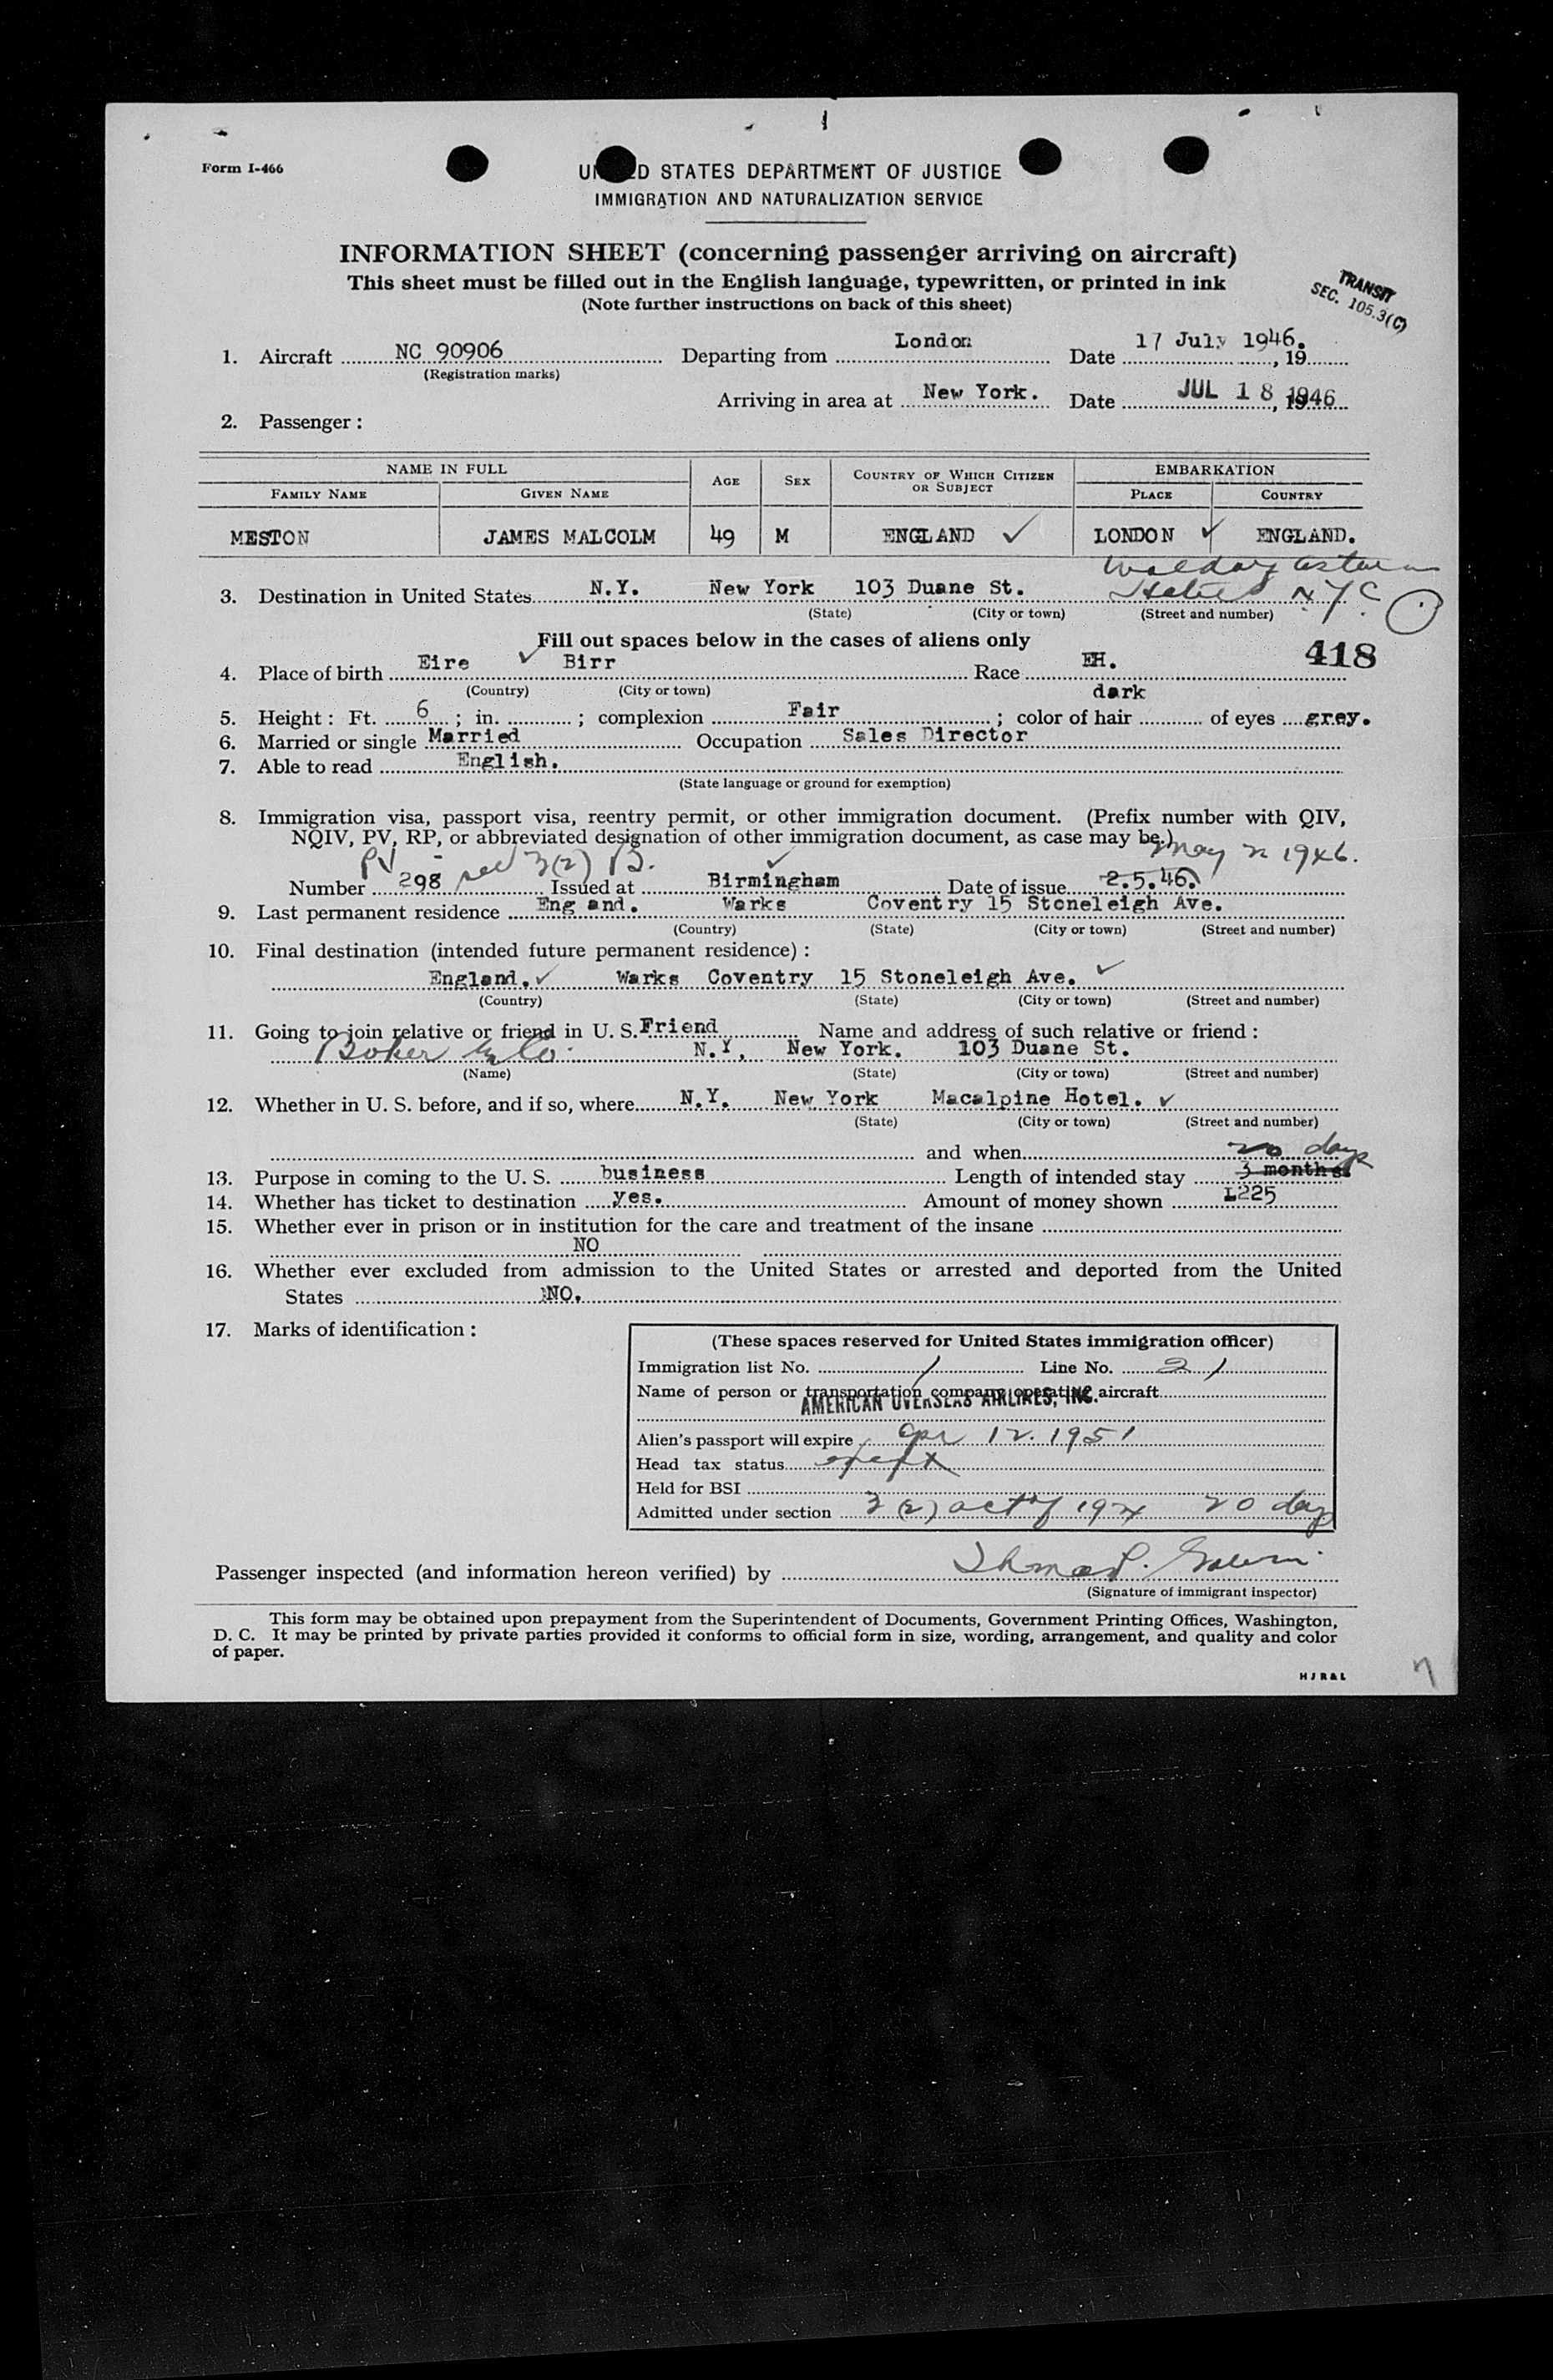 Form I-466
UNITED STATES DEPARTMENT OF JUSTICE
IMMIGRATION AND NATURALIZATION SERVICE
INFORMATION SHEET (concerning passenger arriving on aircraft)
This sheet must be filled out in the English language, typewritten, or printed in ink
(Note further instructions on back of this sheet)
TRANSIT
SEC. 105.3(C)
1. Aircraft NC 90906 Departing from London Date 17 July 1946. , 19
(Registration marks)
Arriving in area at New York. Date JUL 18 1946
2. Passenger :
NAME IN FULL AGE SEX COUNTRY OF WHICH CITIZEN OR SUBJECT EMBARKATION
FAMILY NAME GIVEN NAME PLACE COUNTRY
MESTON JAMES MALCOLM 49 M ENGLAND ✓ LONDON ✓ ENGLAND.
Waldorf Astoria
3. Destination in United States N.Y. New York 103 Duane St. Hotel NYC
(State) (City or town) (Street and number)
Fill out spaces below in the cases of aliens only
418
4. Place of birth Eire ✓ Birr Race EH.
(Country) (City or town) dark
5. Height : Ft. 6 ; in. ; complexion Fair ; color of hair of eyes grey.
6. Married or single Married Occupation Sales Director
7. Able to read English.
(State language or ground for exemption)
8. Immigration visa, passport visa, reentry permit, or other immigration document. (Prefix number with QIV,
NQIV, PV, RP, or abbreviated designation of other immigration document, as case may be.)
PV - sec 3(2) B. ✓ May 2 1946.
Number 298 Issued at Birmingham Date of issue 2.5.46.
9. Last permanent residence Eng and. Warks Coventry 15 Stoneleigh Ave.
(Country) (State) (City or town) (Street and number)
10. Final destination (intended future permanent residence) :
England. ✓ Warks Coventry 15 Stoneleigh Ave. ✓
(Country) (State) (City or town) (Street and number)
11. Going to join relative or friend in U. S. Friend Name and address of such relative or friend :
Boker Co. N.Y. New York. 103 Duane St.
(Name) (State) (City or town) (Street and number)
12. Whether in U. S. before, and if so, where N.Y. New York Macalpine Hotel. ✓
(State) (City or town) (Street and number)
and when 20 days
13. Purpose in coming to the U. S. business Length of intended stay 3 months
14. Whether has ticket to destination yes. Amount of money shown L225
15. Whether ever in prison or in institution for the care and treatment of the insane
NO
16. Whether ever excluded from admission to the United States or arrested and deported from the United
States NO.
17. Marks of identification :
(These spaces reserved for United States immigration officer)
Immigration list No. 1 Line No. 21
Name of person or transportation company operating aircraft
AMERICAN OVERSEAS AIRLINES, INC.
Alien's passport will expire Apr 12. 1951
Head tax status
Held for BSI
Admitted under section 3(2) act of 1924 20 days
Passenger inspected (and information hereon verified) by
(Signature of immigrant inspector)
This form may be obtained upon prepayment from the Superintendent of Documents, Government Printing Offices, Washington,
D. C. It may be printed by private parties provided it conforms to official form in size, wording, arrangement, and quality and color
of paper.
HJR&L
7